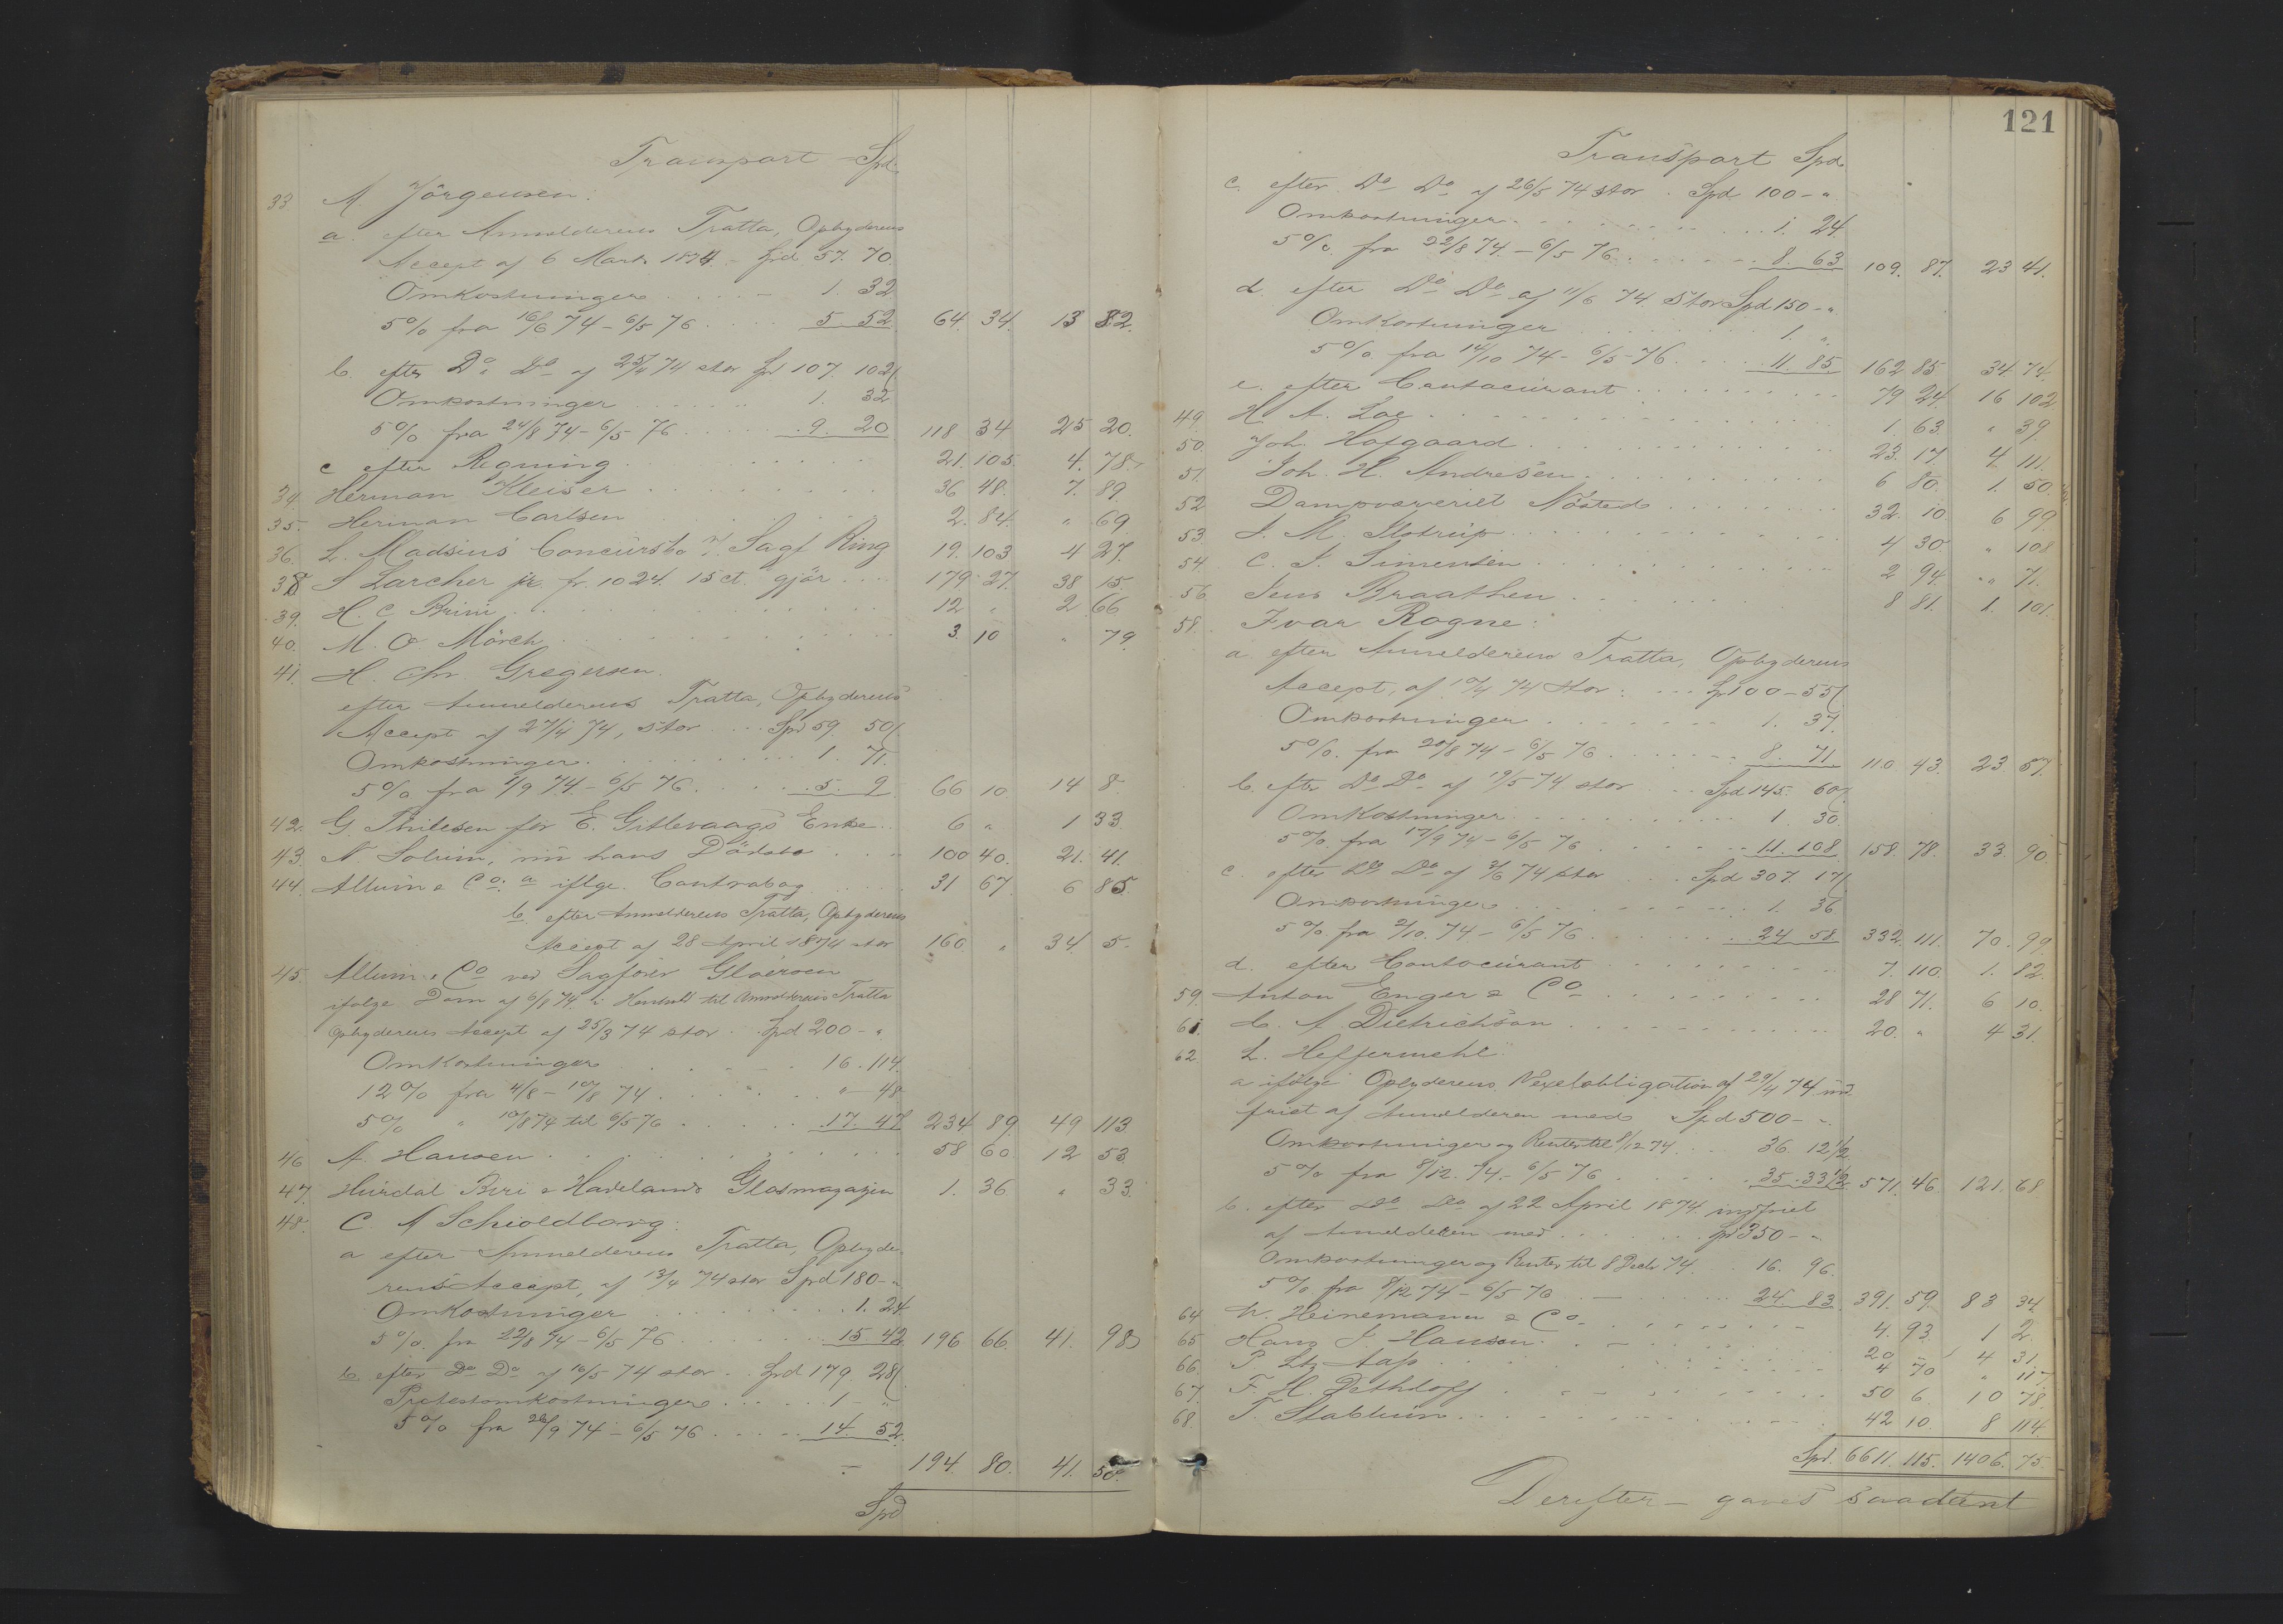 Transport - Spd.
33 M. Jörgensen:
a. efter Anmelderens Tratta, Opbyderens
Accept af 6 Marts 1874 - Spd 57. 70.
Omkostninger . . . 1. 32
5% fra 16/6 74 - 6/5 76 . . . 5. 52 64. 34. 13 82.
b. efter Do Do af 25/4 74 stor Spd 107. 102
Omkostninger . . . 1. 32
5% fra 24/8 74 - 6/5 76 . . . 9. 20 118 34 25 20.
c efter Regning . . . 21. 105. 4. 78.
34. Herman Kleiser . . . 36 48. 7. 89.
35. Herman Carlsen . . . 2. 84. " 69
36. L. Madsins Concursbo v. Sagf Ring 19. 103 4 27.
38 S Larcher jr. fr. 1024. 15 ct. gjör . . . 179. 27. 38 15
39. H. C. Brini . . . 12 " 2 66
40. M. O. Mörch . . . 3. 10 " 79.
41. H. Chr. Gregersen.
efter Anmelderens Tratta, Opbyderens
Accept af 27/4 74, stor . . . Spd 59. 50
Omkostninger . . . 1. 71.
5% fra 1/9 74 - 6/5 76 . . . 5. 9 66 10 14 8.
42. G. Thilesen for E. Gitlevaags Enke . . 6 " 1 33.
43. N. Solum, nu hans Dödsbo . . . 100 40. 21. 41.
44. Allum & Co. a iflge. Contrabog . . . 31 67. 6 85.
b. efter Anmelderens Tratta, Opbyderens
Accept af 28 April 1874 stor 160. " 34 5.
45. Allum & Co ved Sagförer Gloersen
ifölge Dom af 6/8 74. i Henhold til Anmelderens Tratta
Opbyderens Accept af 25/3 74 stor . . Spd 200 - "
Omkostninger . . . 16. 114.
12% fra 4/8 - 10/8 74 . . . " - 48.
5% " 10/8 74 til 6/5 76 . . . 17. 47 234 89. 49 113
46 A. Hansen . . . 58 60. 12 53
47. Hurdal Biri & Hadelands Glasmagazin 1. 36 " 33.
48. C. A Schioldborg:
a efter Anmelderens Tratta, Opbyde-
rens Accept, af 13/4 74 stor Spd 180 - "
Omkostninger . . . 1. 24
5%. fra 22/8 74 - 6/5 76 . . . 15 42 196 66. 41. 98
b. efter Do Do af 16/5 74 stor . . Spd 179. 28
Protestomkostninger . . . 1 - "
5% fra 26/9 74 - 6/5 76 . . . 14. 52.
194. 80. 41. 50.
Spd
121
Transport Spd.
c. efter Do Do af 26/5 74 stor . Spd 100 - "
Omkostninger . . . 1. 24
5%. fra 22/8 74 - 6/5 76 . . . 8. 63 109. 87. 23 41.
d. efter Do Do af 11/6 74 stor Spd 150 - "
Omkostninger . . . 1. "
5%. fra 14/10 74 - 6/5 - 76 . . . 11. 85. 162 85 34 74.
e. efter Contocurant . . . 79 24. 16 102
49. H. A. Loe . . . 1. 63. " 39.
50. Joh. Hofgaard . . . 23. 17 4 111.
51. Joh. H. Andresen . . . 6 80. 1. 50.
52 Dampvæveriet Nösted . . . 32. 10. 6 99.
53. J. M. Ilstrup . . . 4 30. " 108
54. C. J. Simensen . . . 2 94. " 71.
56. Jens Braathen . . . 8 81. 1. 101.
58. Ivar Rogne:
a efter Anmelderens Tratta, Opbyderens
Accept, af 17/4 74 stor . . . Sp 100 - 55
Omkostninger . . . 1. 37.
5%. fra 20/8 74 - 6/5 76 . . . 8. 71. 110. 43. 23. 57.
b. efter Do Do af 19/5 74 stor . . . Spd 145. 60
Omkostninger . . . 1. 30
5%. fra 17/9 74 - 6/5 76 . . . 11. 108 158. 78. 33. 90.
c. efter Do Do af 3/6 74 stor . . . Spd 307. 17
Omkostninger . . . 1. 36
5%. fra 2/10. 74 - 6/5 76 . . . 24 58 332. 111. 70. 99.
d. efter Contocurant . . . 7. 110. 1. 82.
59. Anton Enger & Co . . . 28 71. 6 10.
61. C. A Dietrichson . . . 20. " 4 31.
62 L. Heffermehl
a ifölge Opbyderens Vexelobligation af 29/4 74 ind-
friet af Anmelderen med Spd 500 - "
Omkostninger og Renter til 8/12 74 . . . 36. 12 1/2
5% fra 8/12. 74 - 6/5 76 . . . 35. 33 1/2 571. 46. 121. 68
b. efter Do Do af 22 April 1874 indfriet
af Anmelderen med . . . Spd 350 - "
Omkostninger og Renter til 8 Decb 74. . 16. 96.
5% fra 8/12 74 - 6/5 76 . . . 24 83. 391. 59. 83 34.
64 W. Heinemann & Co . . . 4. 93. 1 2.
65 Hans J. Hansen . . . 20 - 4 31.
66. P. Ltz Aas . . . 4 70 " 117
67. F. H. Dethloff . . . 50 6. 10 78.
68. T. Stablum . . . 42 10. 8 114.
Spd. 6611. 115. 1406. 75.
Derefter - gaves saadant